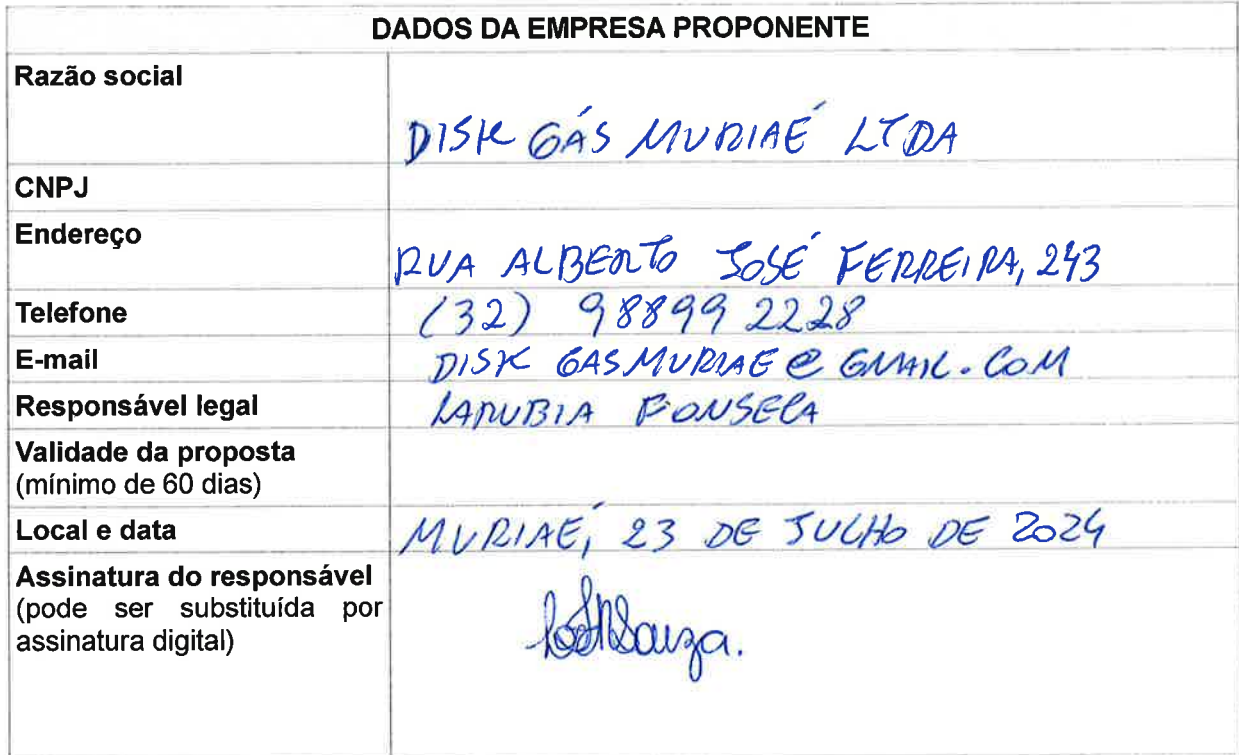 DADOS DA EMPRESA PROPONENTE
Razão social
DISK GÁS MURIAÉ LTDA
CNPJ
Endereço
RUA ALBERTO JOSÉ FERREIRA, 243
Telefone
(32) 98899 2228
E-mail
DISK GASMURIAE@GMAIL.COM
Responsável legal
LARUBIA FONSECA
Validade da proposta
(mínimo de 60 dias)
Local e data
MURIAÉ, 23 DE JULHO DE 2024
Assinatura do responsável
(pode ser substituída por
assinatura digital)